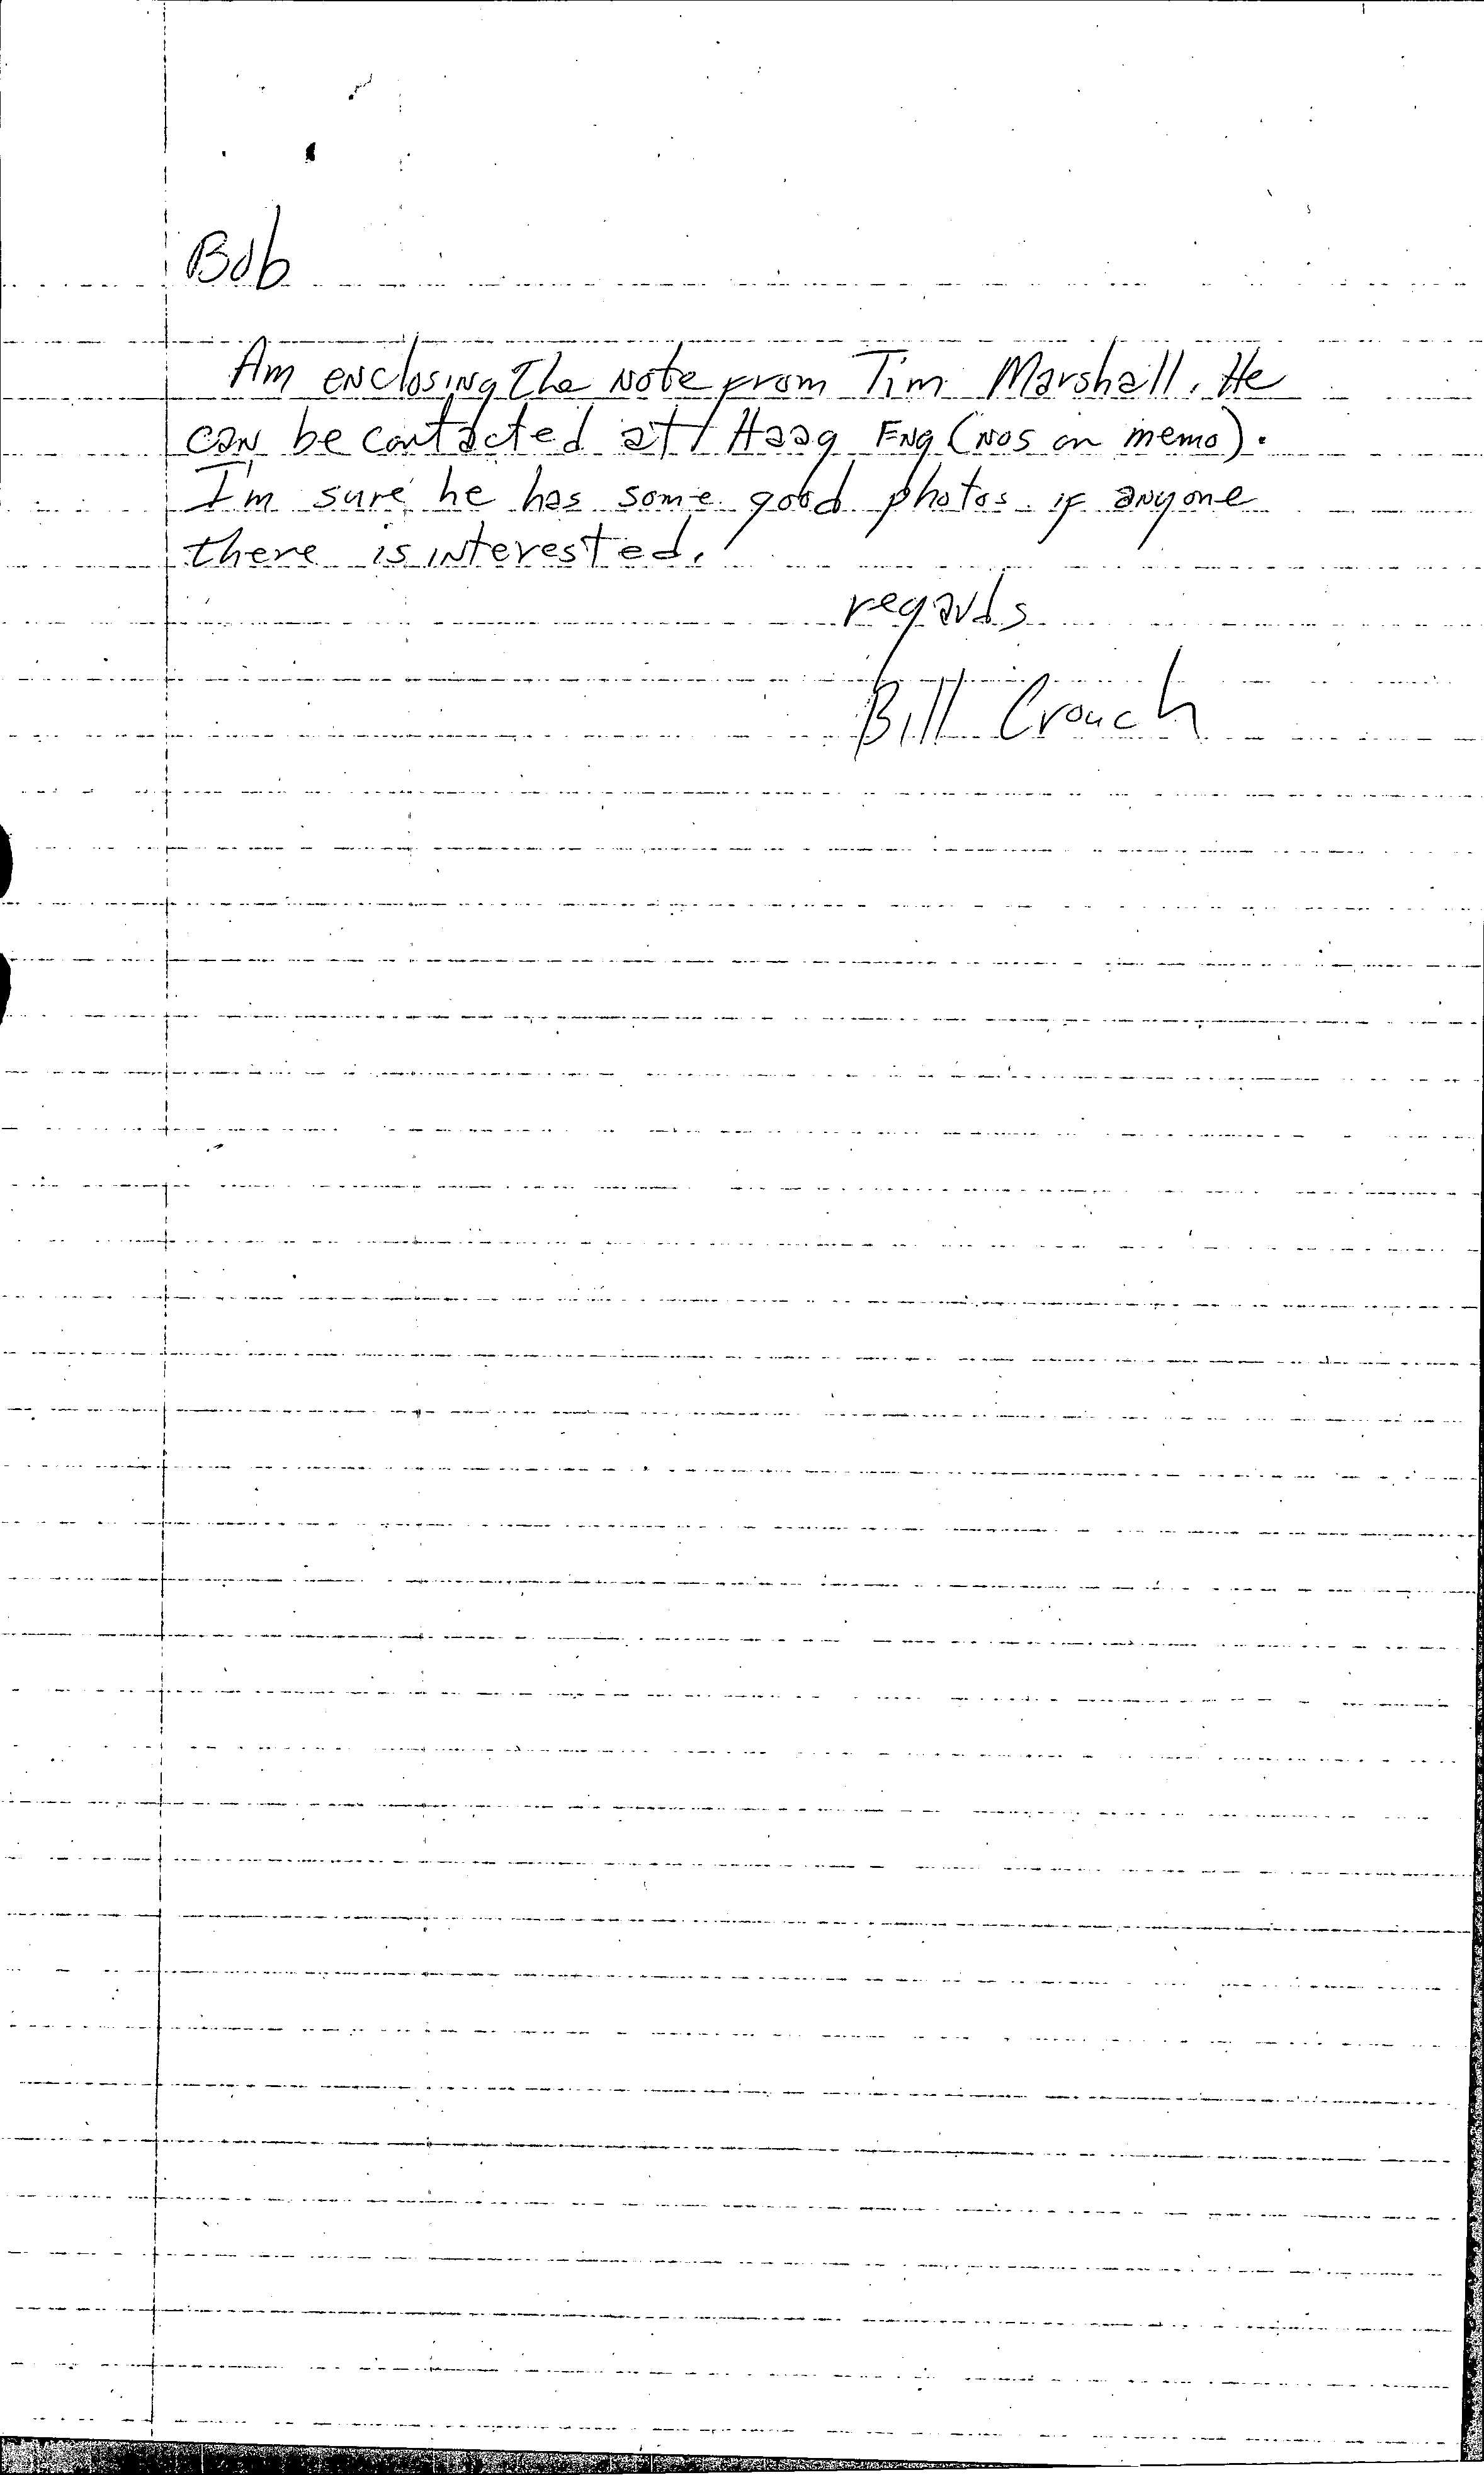 Bob
Am enclosing the note from Tim Marshall. He
can be contacted at Haag Eng (nos on memo).
I'm sure he has some good photos if anyone
there is interested.
regards
Bill Crouch